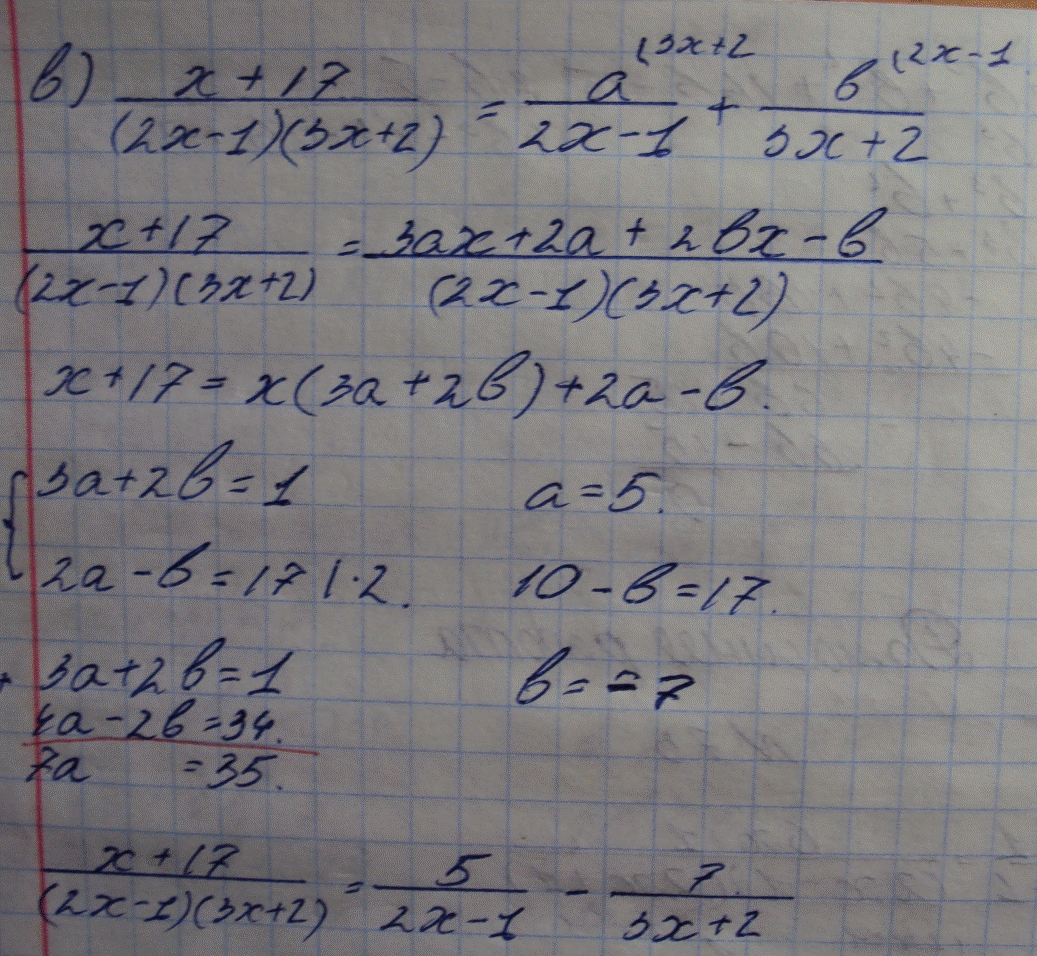 в) (x + 17)/((2x-1)(3x+2)) = a^(3x+2/(2x-1) + в^(2x-1/(3x+2)
(x+17)/((2x-1)(3x+2)) = (3ax+2a + 2вx - в)/((2x-1)(3x+2))
x+17 = x(3a+2в)+2a-в.
{3a+2в=1 a=5.
2a-в=17 |·2. 10-в=17.
+ 3a+2в=1 в=-7
4a-2в=34.
7a =35.
(x+17)/((2x-1)(3x+2)) = 5/(2x-1) - 7/(3x+2)